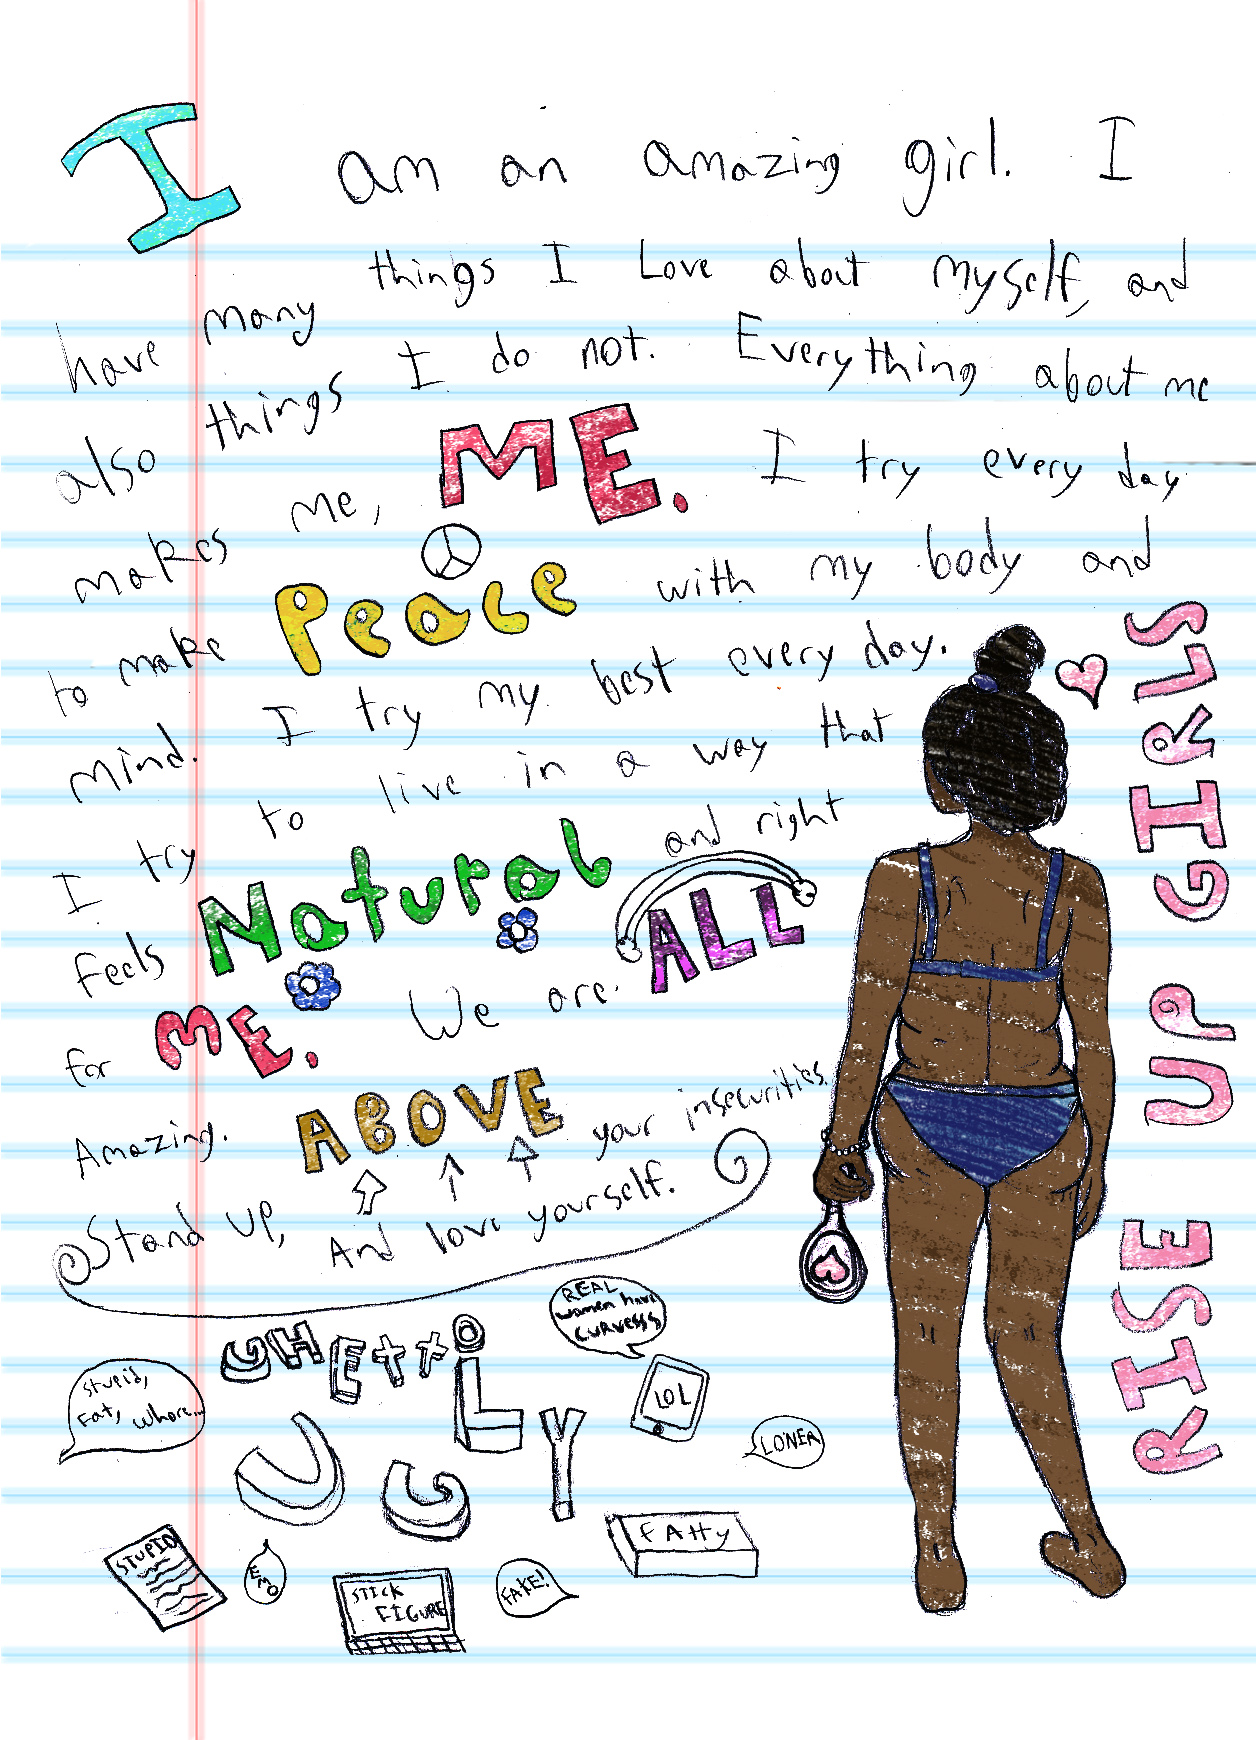 I am an amazing girl. I
have many things I Love about myself, and
also things I do not. Everything about me
makes me, ME. I try every day
to make Peace with my body and
mind. I try my best every day.
I try to live in a way that
feels Natural and right
for ME. We are ALL
Amazing.
Stand up, ABOVE your insecurities.
And love yourself.
RISE UP GIRLS
GHETTO
UGLY
REAL
women have
CURVESSS
Stupid,
Fat, whore...
LOL
LONER
STUPID
EMO
STICK
FIGURE
FAKE!
FATTY